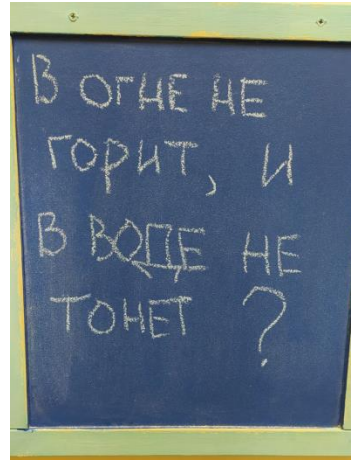 В ОГНЕ НЕ
ГОРИТ, И
В ВОДЕ НЕ
ТОНЕТ ?